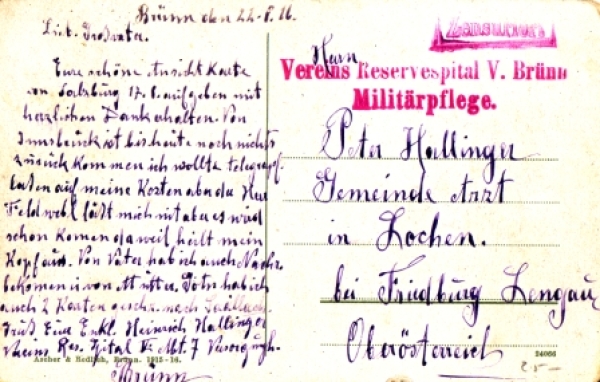 Brünn den 22.
Lieb. Großvater.
Eure schöne Ansicht Karte
von Salzburg 17.8. aufgeben mit
herzlichen Dank erhalten. Von
Innsbruck ist bis heute noch nichts
zurück kommen ich wollte telegraf.
lassen auf meine Kosten aber da Herr
Feldwebl läßt mich nit aber es wird
schon komen da weil heilt mein
Kopf aus. Von Vater hab ich auch Nachr.
bekomen u. von Mutter. hab ich
auch 2 Karten geschr. nach
Gruß Eure Enkl. Heinrich Hallinger
Res. Spital V. Abt. 7
Brünn
Ascher & Redlich, Brünn. 1915-16.
Zensuriert
Herrn
Vereins Reservespital V. Brünn
Militärpflege.
Peter Hallinger
Gemeinde Arzt
in Lochen.
bei Friedburg Lengau
Oberösterreich
24066
25-